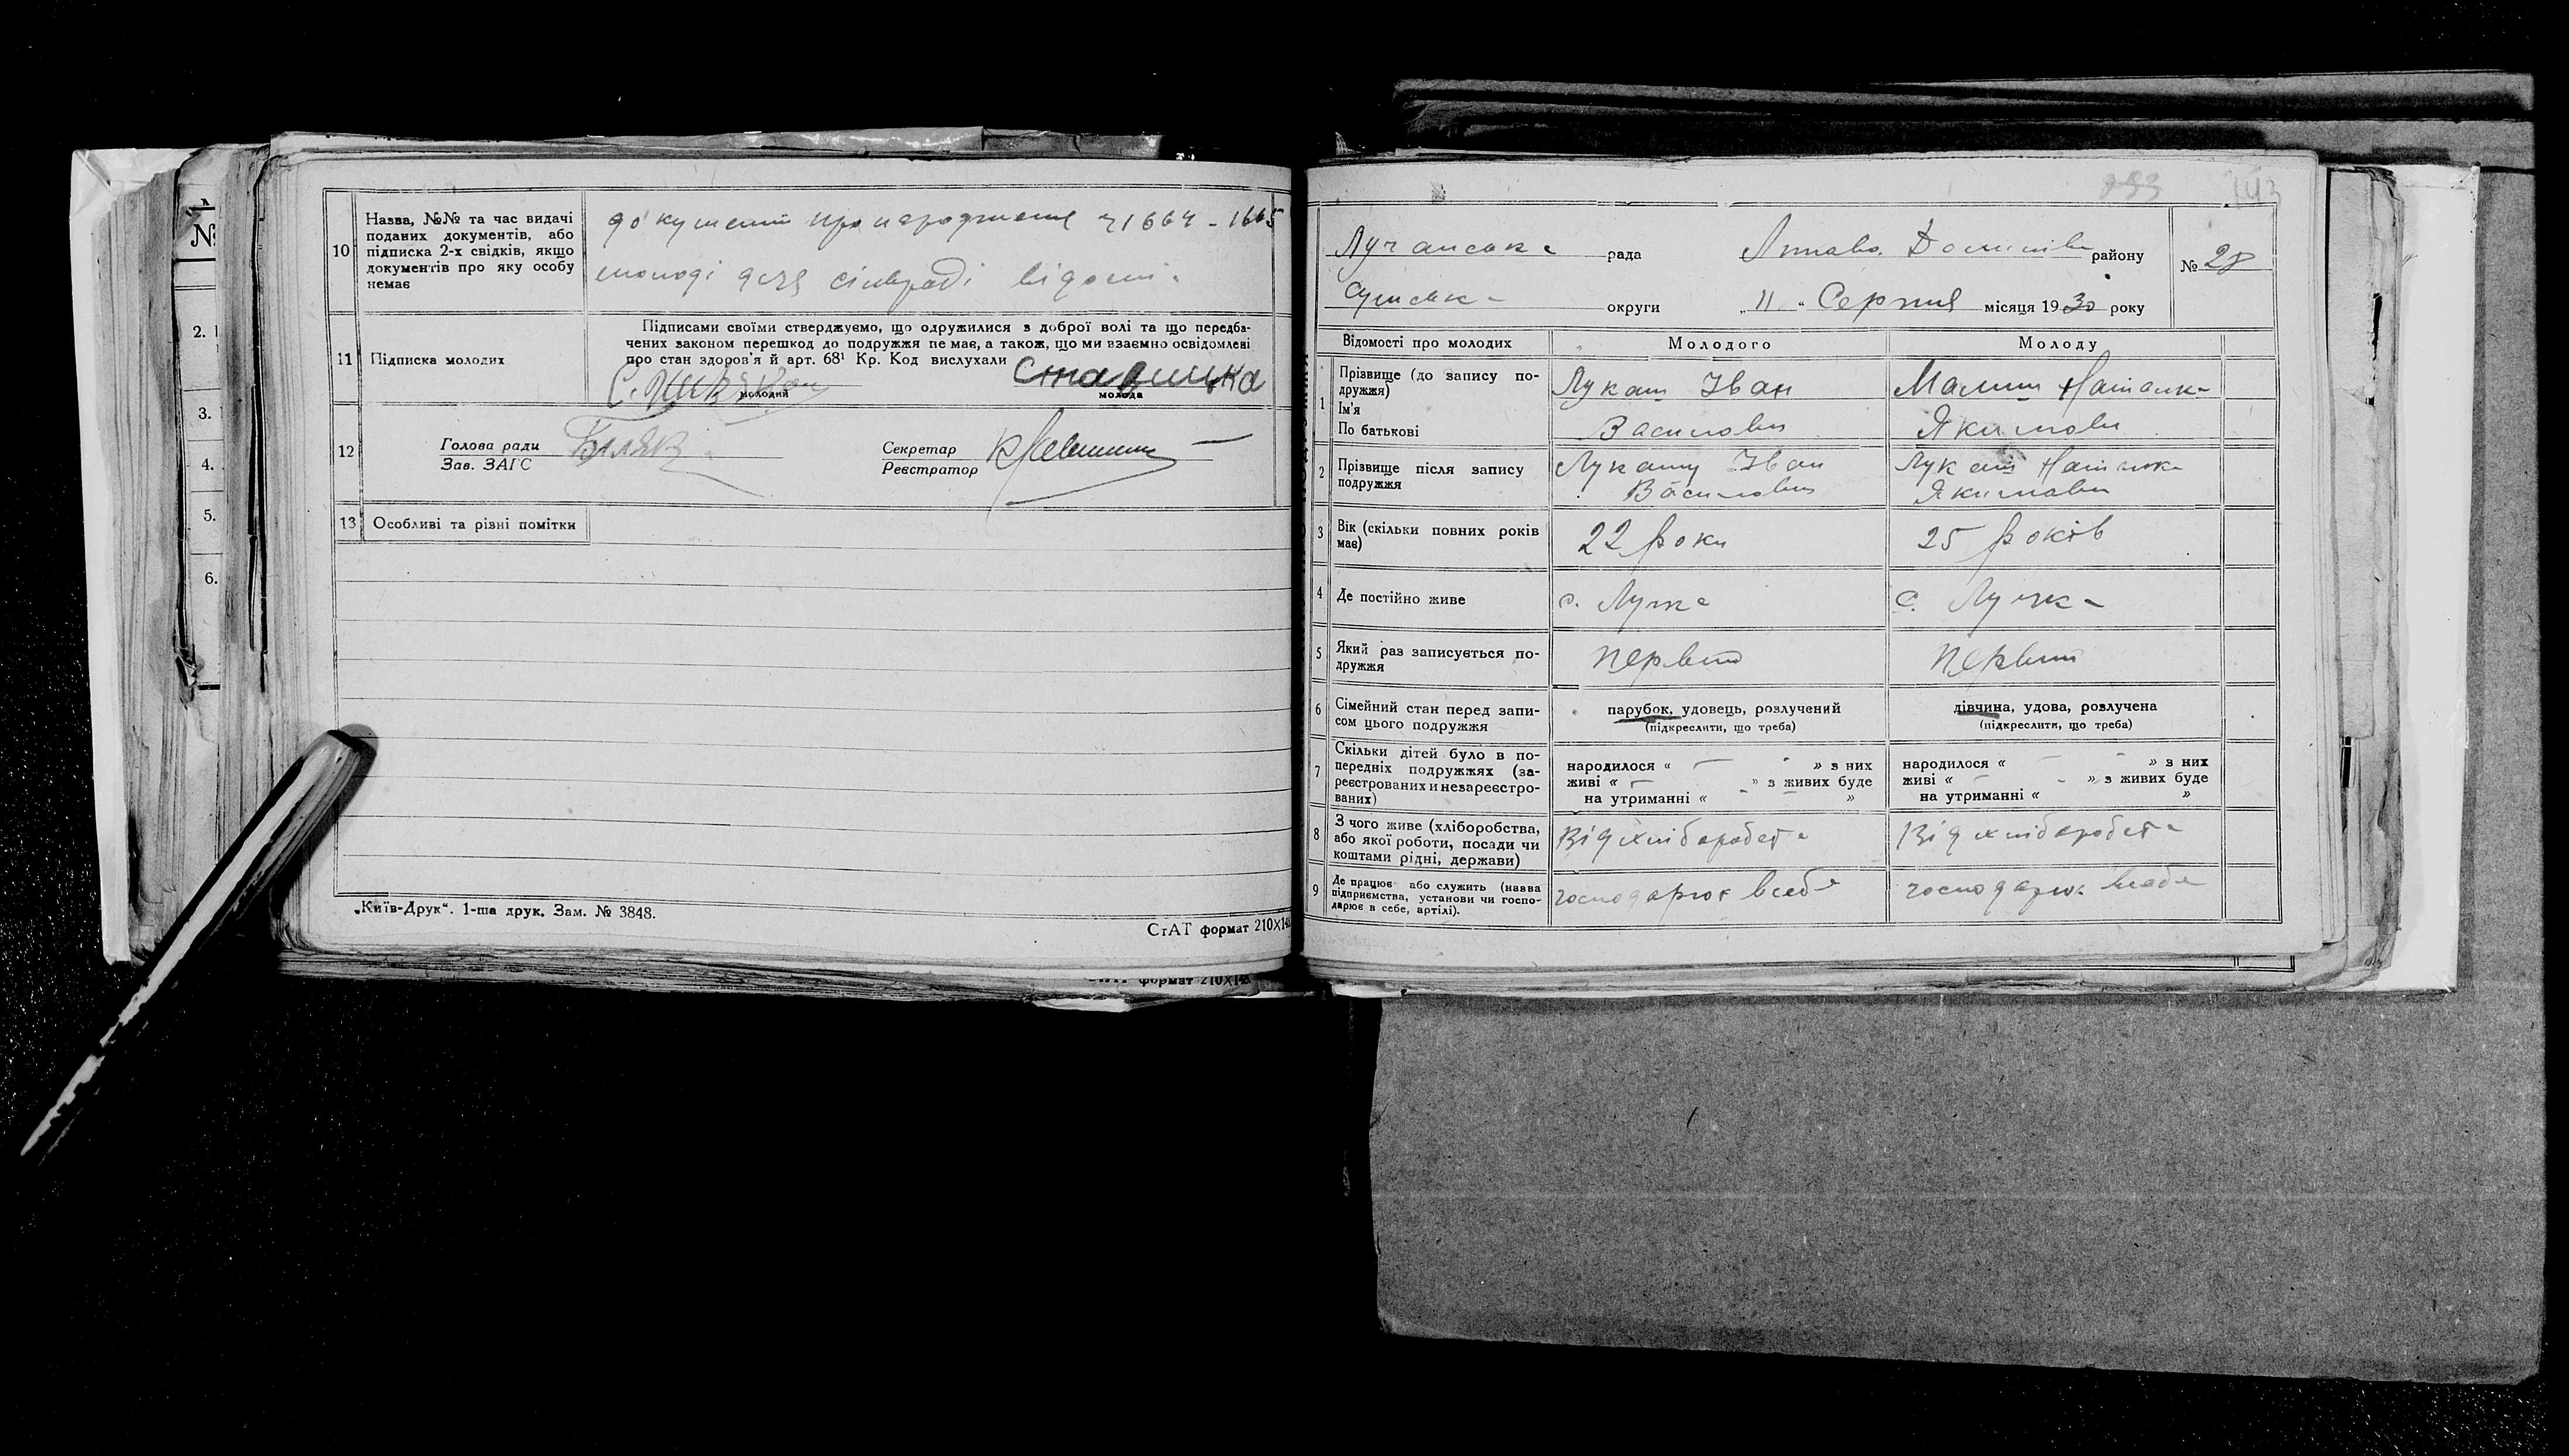 №
2.
3.
4.
5.
6.
10 Назва, №№ та час видачі
поданих документів, або
підписка 2-х свідків, якщо
документів про яку особу
немає
документи про народження 1664 - 1665
молоді для сільради відомі.
11 Підписка молодих
Підписами своїми стверджуємо, що одружилися з доброї волі та що передба-
чених законом перешкод до подружжя не має, а також, що ми взаємно освідомлені
про стан здоров'я й арт. 68¹ Кр. Код вислухали
молодий
молода
12 Голова ради
Зав. ЗАГС
Секретар
Реєстратор
13 Особливі та різні помітки
„Київ-Друк“. 1-ша друк. Зам. № 3848.
СтАТ формат 210×14
формат 210×148
Лучанська рада района району № 28
округи „11“ Серпня місяця 1930 року
Відомості про молодих Молодого Молоду
1 Прізвище (до запису по-
дружжя)
Ім'я
По батькові
Лукаш Іван
Василович
Наталка
Якимовн
2 Прізвище після запису
подружжя
Лукаш Іван
Василович
Лукаш Наталка
Якимовн
3 Вік (скільки повних років
має)
22 роки
25 років
4 Де постійно живе
с. Лучка
с. Лучка
5 Який раз записується по-
дружжя
первий
первий
6 Сімейний стан перед запи-
сом цього подружжя
парубок, удовець, розлучений
(підкреслити, що треба)
дівчина, удова, розлучена
(підкреслити, що треба)
7 Скільки дітей було в по-
передніх подружжях (за-
реєстрованих и незареєстро-
ваних)
народилося « — » з них
живі « — » з живих буде
на утриманні « — »
народилося « — » з них
живі « — » з живих буде
на утриманні « »
8 З чого живе (хліборобства,
або якої роботи, посади чи
коштами рідні, держави)
Від хліборобства
Від хліборобства
9 Де працює або служить (назва
підприємства, установи чи госпо-
дарює в себе, артілі).
господарює в себе
господарює в себе